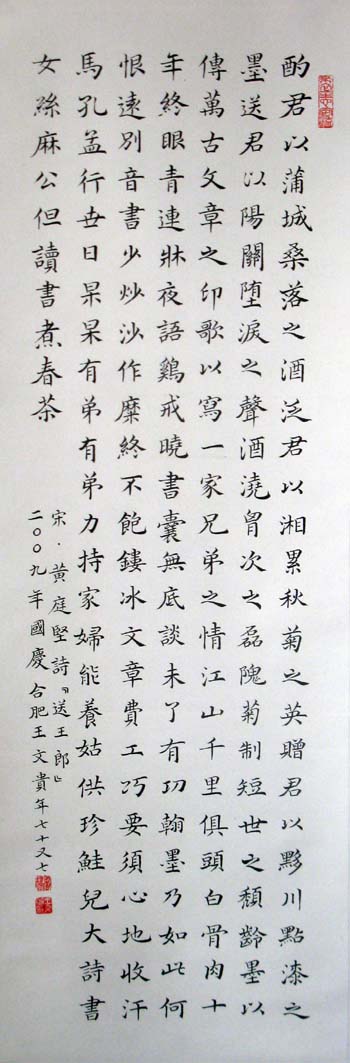 酌君以蒲城桑落之酒泛君以湘累秋菊之英贈君以黟川點漆之
墨送君以陽關墮淚之聲酒澆胷次之磊隗菊制短世之頹齡墨以
傳萬古文章之印歌以寫一家兄弟之情江山千里俱頭白骨肉十
年終眼青連牀夜語鷄戒曉書囊無底談未了有功翰墨乃如此何
恨遠別音書少炒沙作糜終不飽鏤冰文章費工巧要須心地收汗
馬孔孟行世日杲杲有弟有弟力持家婦能養姑供珍鮭兒大詩書
女絲麻公但讀書煮春茶
宋·黃庭堅詩『送王郎』
二〇〇九年國慶合肥王文貴年七十又七